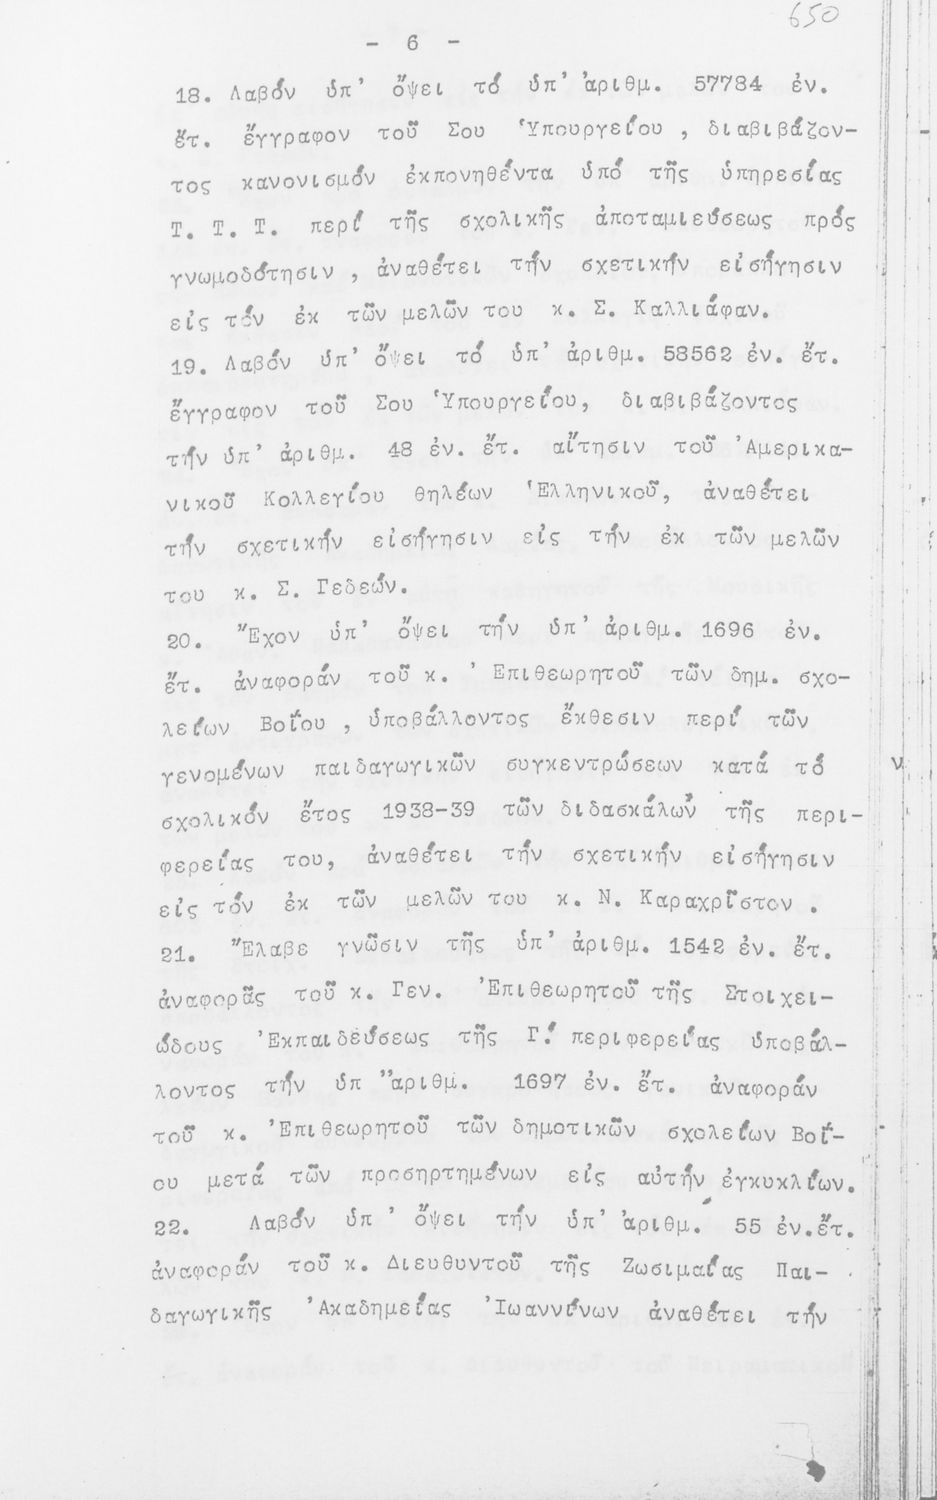 650
- 6 -
18. Λαβόν ὑπ' ὄψει τό ὑπ' ἀριθμ. 57784 ἐν.
ἔτ. ἔγγραφον τοῦ Σου Ὑπουργείου , διαβιβάζον-
τος κανονισμόν ἐκπονηθέντα ὑπό τῆς ὑπηρεσίας
Τ. Τ. Τ. περί τῆς σχολικῆς ἀποταμιεύσεως πρός
γνωμοδότησιν , ἀναθέτει τήν σχετικήν εἰσήγησιν
εἰς τόν ἐκ τῶν μελῶν του κ. Σ. Καλλιάφαν.
19. Λαβόν ὑπ' ὄψει τό ὑπ' ἀριθμ. 58562 ἐν. ἔτ.
ἔγγραφον τοῦ Σου Ὑπουργείου, διαβιβάζοντος
τήν ὑπ' ἀριθμ. 48 ἐν. ἔτ. αἴτησιν τοῦ Ἀμερικα-
νικοῦ Κολλεγίου θηλέων Ἑλληνικοῦ, ἀναθέτει
τήν σχετικήν εἰσήγησιν εἰς τήν ἐκ τῶν μελῶν
του κ. Σ. Γεδεών.
20. Ἔχον ὑπ' ὄψει τήν ὑπ' ἀριθμ. 1696 ἐν.
ἔτ. ἀναφοράν τοῦ κ. Ἐπιθεωρητοῦ τῶν δημ. σχο-
λείων Βοΐου , ὑποβάλλοντος ἔκθεσιν περί τῶν
γενομένων παιδαγωγικῶν συγκεντρώσεων κατά τό
σχολικόν ἔτος 1938-39 τῶν διδασκάλων τῆς περι-
φερείας του, ἀναθέτει τήν σχετικήν εἰσήγησιν
εἰς τόν ἐκ τῶν μελῶν του κ. Ν. Καραχρῖστον .
21. Ἔλαβε γνῶσιν τῆς ὑπ' ἀριθμ. 1542 ἐν. ἔτ.
ἀναφορᾶς τοῦ κ. Γεν. Ἐπιθεωρητοῦ τῆς Στοιχει-
ώδους Ἐκπαιδεύσεως τῆς Γ΄. περιφερείας ὑποβάλ-
λοντος τήν ὑπ "αριθμ. 1697 ἐν. ἔτ. ἀναφοράν
τοῦ κ. Ἐπιθεωρητοῦ τῶν δημοτικῶν σχολείων Βοΐ-
ου μετά τῶν προσηρτημένων εἰς αὐτήν ἐγκυκλίων.
22. Λαβόν ὑπ ' ὄψει τήν ὑπ' ἀριθμ. 55 ἐν.ἔτ.
ἀναφοράν τοῦ κ. Διευθυντοῦ τῆς Ζωσιμαίας Παι-
δαγωγικῆς Ἀκαδημείας Ἰωαννίνων ἀναθέτει τήν